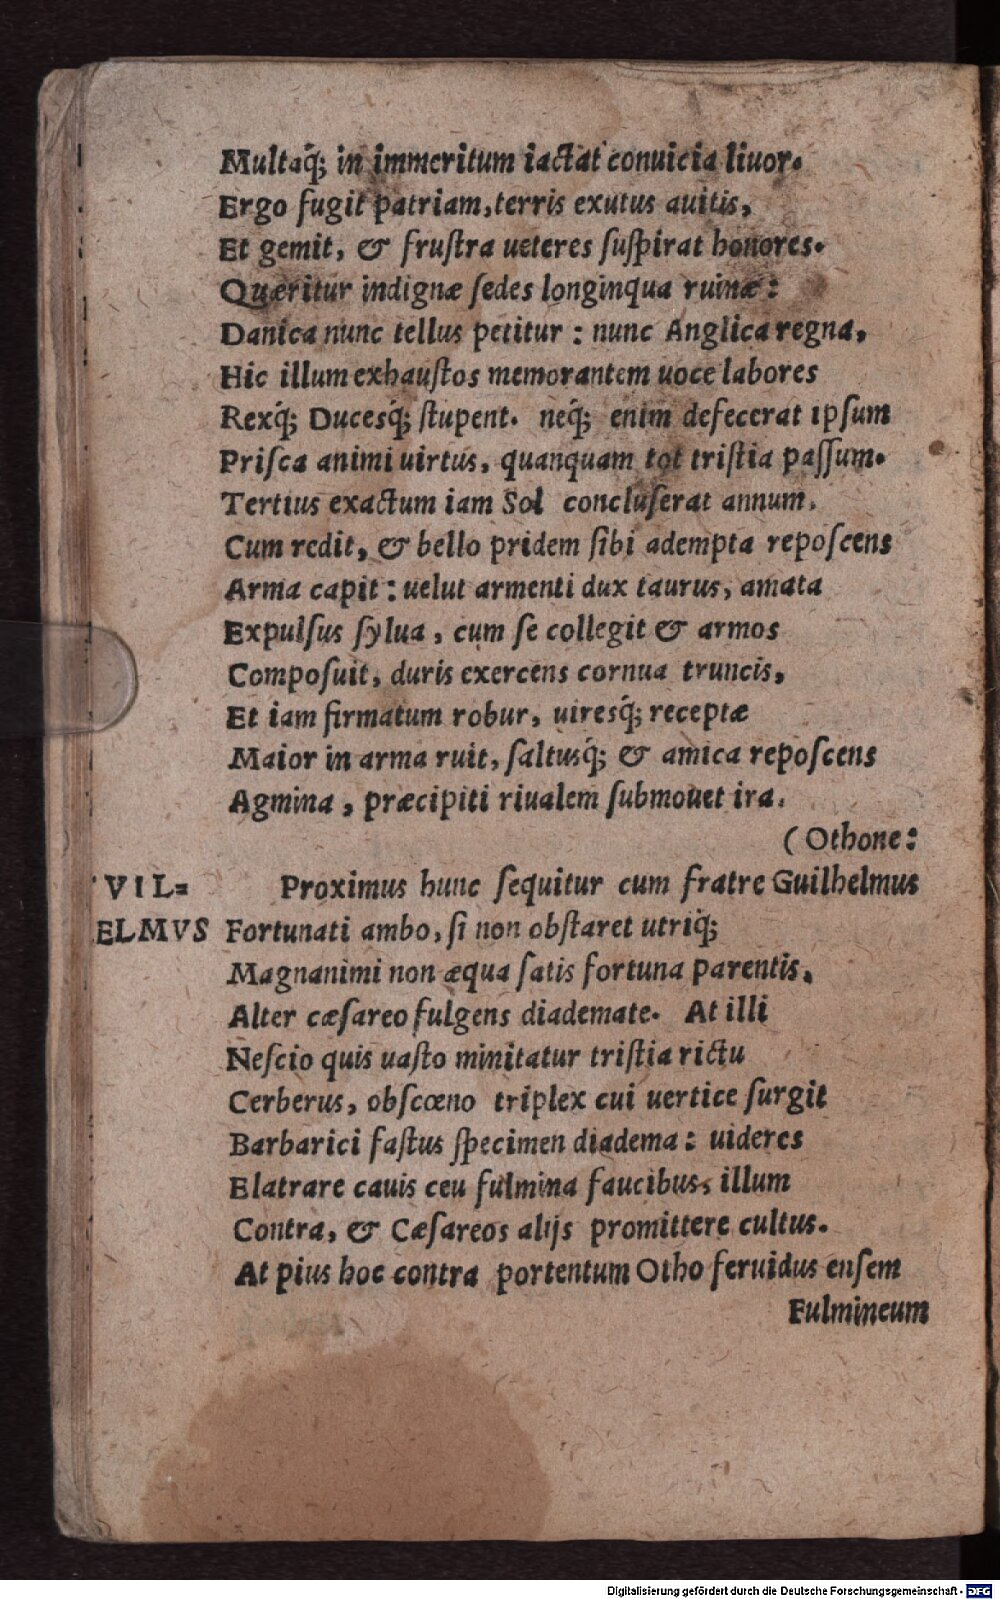 Multaq́; in immeritum iactat conuicia liuor.
Ergo fugit patriam, terris exutus auitis,
Et gemit, & fruſtra ueteres ſuſpirat honores.
Quæritur indignæ ſedes longinqua ruinæ:
Danica nunc tellus petitur: nunc Anglica regna,
Hic illum exhauſtos memorantem uoce labores
Rexq́; Ducesq́; ſtupent. neq́; enim defecerat ipſum
Priſca animi uirtus, quanquam tot triſtia paſſum.
Tertius exactum iam Sol concluſerat annum,
Cum redit, & bello pridem ſibi adempta repoſcens
Arma capit: uelut armenti dux taurus, amata
Expulſus ſylua, cum ſe collegit & armos
Compoſuit, duris exercens cornua truncis,
Et iam firmatum robur, uiresq́; receptæ
Maior in arma ruit, ſaltusq́; & amica repoſcens
Agmina, præcipiti riualem ſubmouet ira.
(Othone:
VIL= Proximus hunc ſequitur cum fratre Guilhelmus
ELMVS Fortunati ambo, ſi non obſtaret utriq́;
Magnanimi non æqua ſatis fortuna parentis,
Alter cæſareo fulgens diademate. At illi
Neſcio quis uaſto minitatur triſtia rictu
Cerberus, obſcœno triplex cui uertice ſurgit
Barbarici faſtus ſpecimen diadema: uideres
Elatrare cauis ceu fulmina faucibus, illum
Contra, & Cæſareos alijs promittere cultus.
At pius hoc contra portentum Otho feruidus enſem
Fulmineum
Digitalisierung gefördert durch die Deutsche Forschungsgemeinschaft - DFG